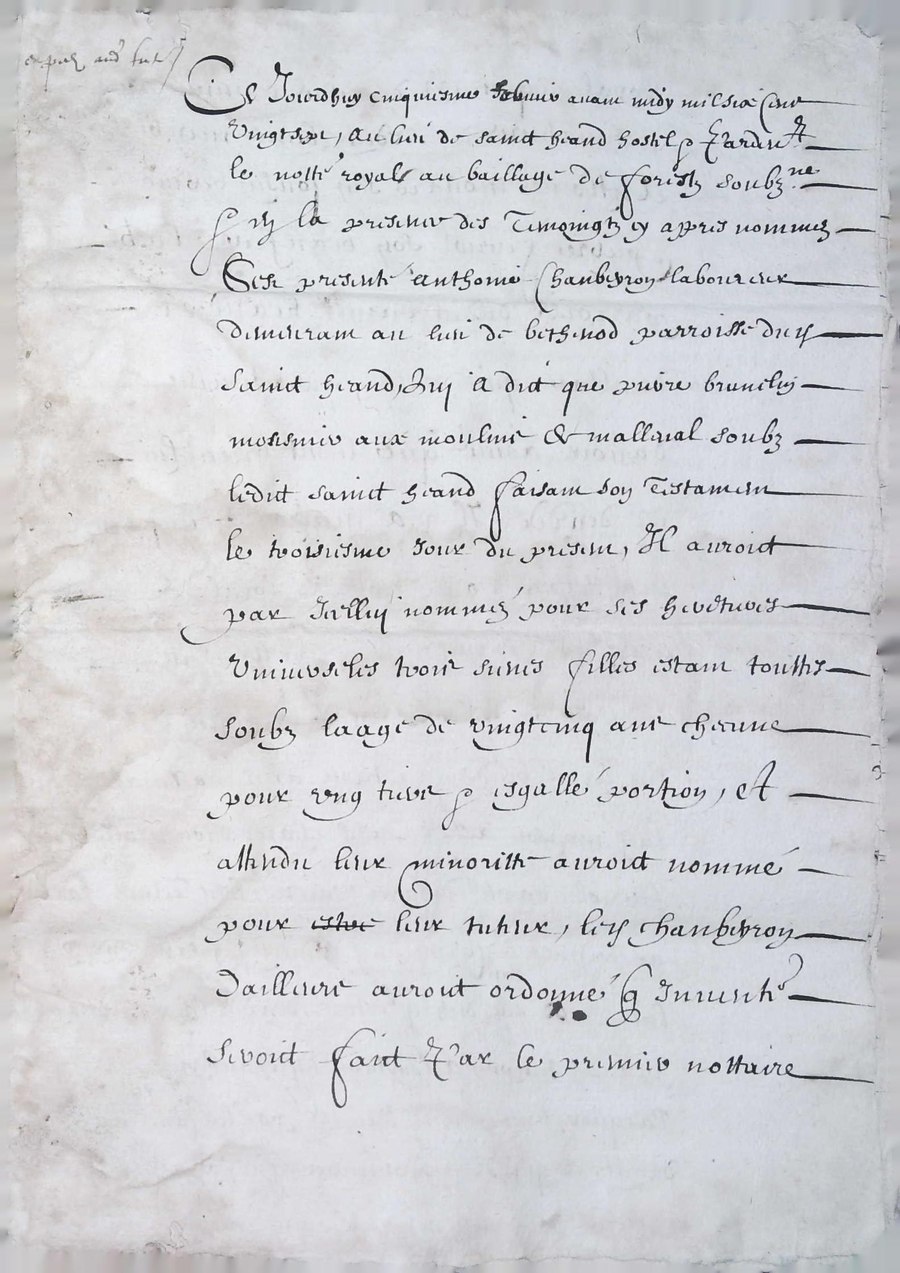 Ce Jourdhuy cinquiesme febvrier avant midy mil six cent
vingtsept, au lieu de sainct heand hostel p pardevt
le nottre royal au baillage de forestz soubzne
p en la presence des Temoingtz cy apres nommez
Sest presenté anthoine Chanbeyron laboureur
demeurant au lieu de bethenod parroisse dud
sainct heand, qui a dict que pierre brunelin
mosnnier aux moulins de malleval soubz
ledict sainct heand faisant son Testament
le troisiesme Jour du present, Il auroict
par Icelluy nommez pour ses herètieres
Universeles trois sienes filles estant touttes
soubz laage de vingtcinq ans checune
pour ung tiers p esgallé portion, et
attendu leur minoritte auroict nommé
pour estre leur tuteur, led Chanbeyron
dailleurs auroict ordonné Inventre
seroict faict Par le premier nottaire